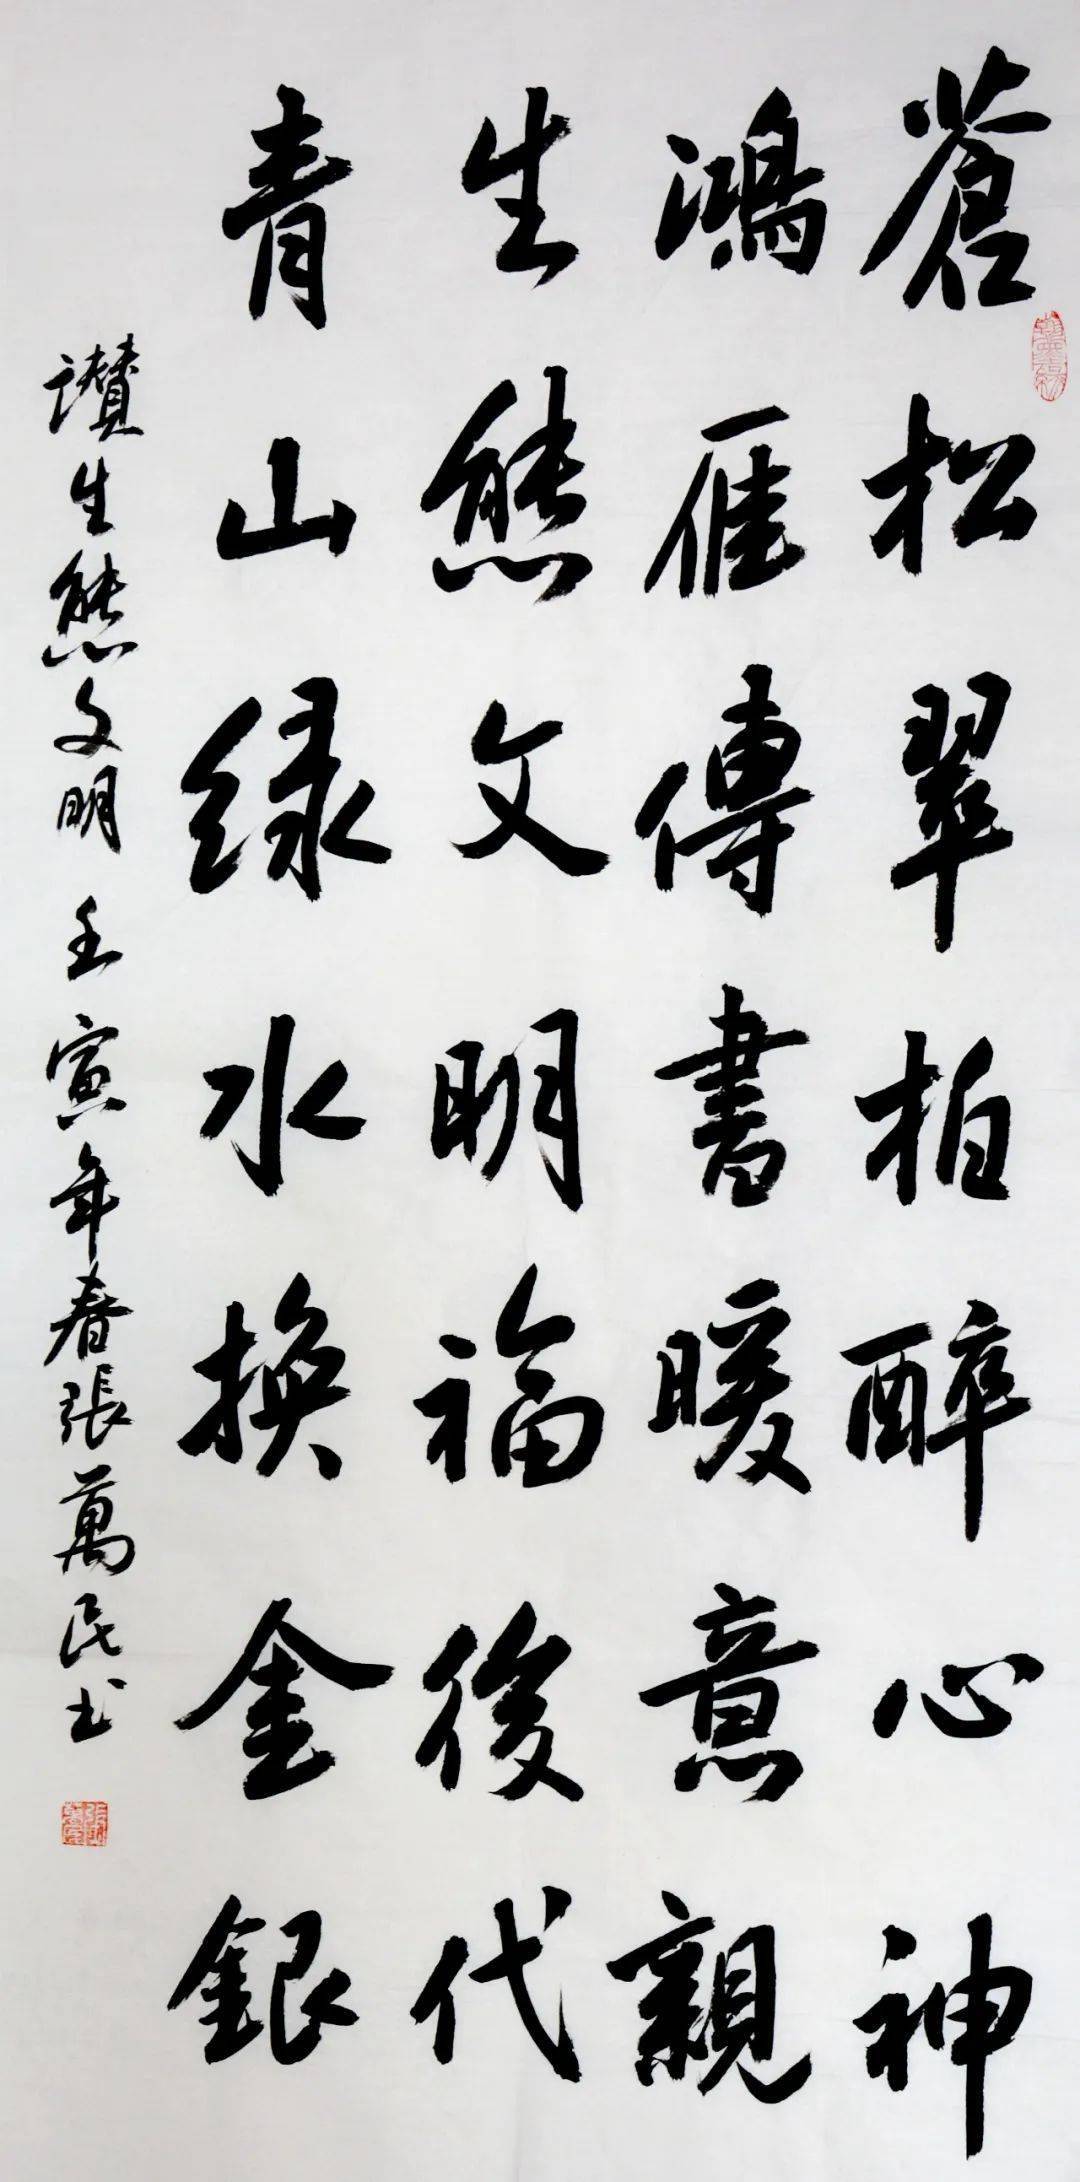 蒼松翠柏醉心神
鴻雁傳書暖意親
生態文明福後代
青山绿水換金銀
讚生態文明壬寅年春張萬民书